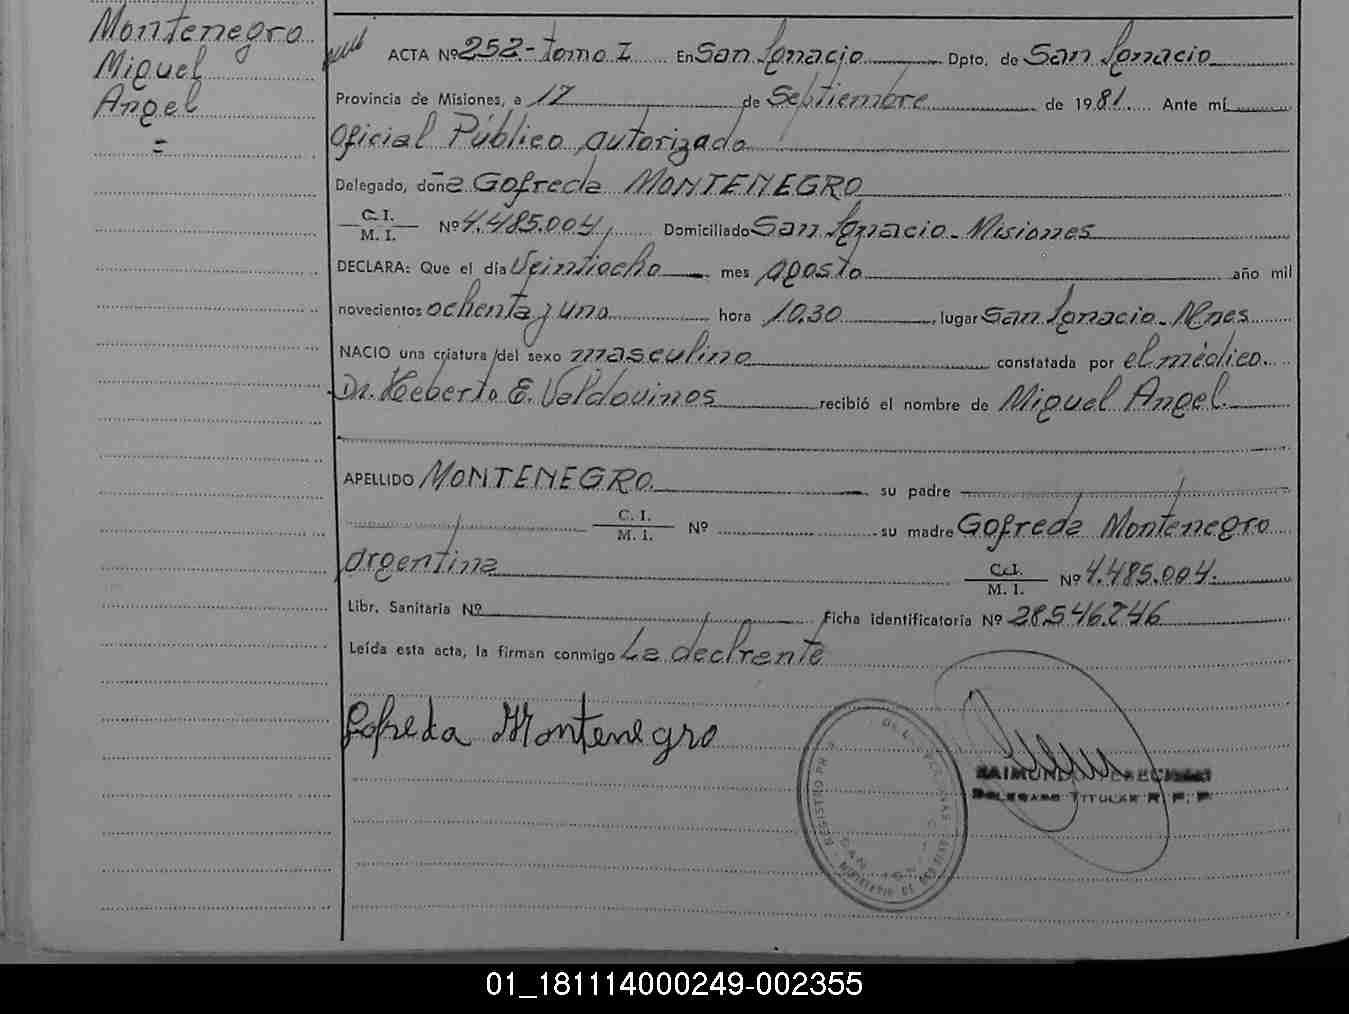 Montenegro
Miguel
Angel
=
ACTA Nº 252 - tomo I En San Ignacio Dpto. de San Ignacio
Provincia de Misiones, a 17 de Septiembre de 1981. Ante mí
Oficial Público autorizado
Delegado, doña Gofreda MONTENEGRO
C. I.
M. I. Nº 4.485.004, Domiciliado San Ignacio - Misiones
DECLARA: Que el día Veintiocho mes agosto año mil
novecientos ochenta y uno hora 10.30, lugar San Ignacio - Mnes
NACIO una criatura del sexo masculino constatada por el médico
Dr. Heberto E. Valdovinos recibió el nombre de Miguel Angel
APELLIDO MONTENEGRO su padre
C. I.
M. I. Nº su madre Gofreda Montenegro
argentina C. I.
M. I. Nº 4.485.004.
Libr. Sanitaria Nº Ficha identificatoria Nº 28.546.746
Leída esta acta, la firman conmigo La declrante
Gofreda Montenegro
DELEGADO TITULAR R. P. P.
REGISTRO
MINISTERIO DE
01_181114000249-002355